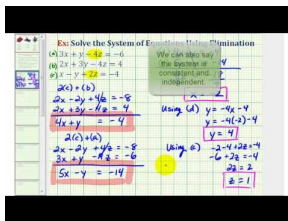 Ex: Solve the System of Equations Using Elimination
(a) 3x + y - 4z = -6
(b) 2x + 3y - 4z = 4
(c) x - y + 2z = -4
We can also say
the system is
consistent and
independent.
2(c) + (b)
2x - 2y + 4z = -8
2x + 3y - 4z = 4
4x + y = -4
2(c) + (a)
2x - 2y + 4z = -8
3x + y - 4z = -6
5x - y = -14
Using (d) y = -4x - 4
y = -4(-2) - 4
y = 4
Using (c)
-2 - 4 + 2z = -4
-6 + 2z = -4
2z = 2
z = 1